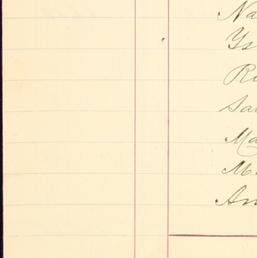 Na
Ys
Ri
Sa
Ma
M.
An